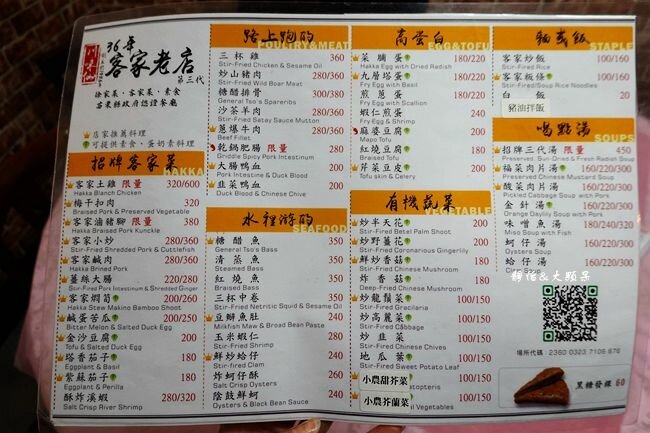 36年
客家老店
第三代
徐家菜、客家菜、素食
苗栗縣政府認證餐廳
店家推薦料理
可提供素食、蛋奶素料理
招牌客家菜
HAKKA
客家土雞 限量 320/600
Hakka Blanch Chicken
梅干扣肉 320
Braised Pork & Preserved Vegetable
客家滷豬腳 限量 380
Hakka Braised Pork Kunckle
客家小炒 280/360
Stir-Fried Shredded Pork & Cuttlefish
客家鹹肉 280/360
Hakka Brined Pork
薑絲大腸 180/220
Stir-Fried Pork Intestinum & Shredded Ginger
客家燜筍 200/260
Hakka Stew Making Bamboo Shoot
鹹蛋苦瓜 200/250
Bitter Melon & Salted Duck Egg
金沙豆腐 200
Tofu & Salted Duck Egg
塔香茄子 180
Eggplant & Basil
紫蘇茄子 180
Eggplant & Perilla
酥炸溪蝦 280/320
Salt Crisp River Shrimp
路上跑的
POULTRY&MEAT
三杯雞 360
Stir-Fried Chicken & Sesame Oil
炒山豬肉 280/360
Stir-Fried Wild Boar Meat
糖醋排骨 300/380
General Tso's Spareribs
沙茶羊肉 280/360
Stir-Fried Satay Sauce Mutton
蔥爆牛肉 280/360
Beef Fillet
乾鍋肥腸 限量 280
Griddle Spicy Pork Intestinum
大腸鴨血 200
Pork Intestine & Duck Blood
韭菜鴨血 200
Duck Blood & Chinese Chive
水裡游的
SEAFOOD
糖醋魚 350
General Tso's Bass
清蒸魚 350
Steamed Bass
紅燒魚 350
Braised Bass
三杯中卷 350
Stir-Fried Netritic Squid & Sesame Oil
豆瓣魚肚 240
Milkfish Maw & Broad Bean Paste
玉米蝦仁 280
Stir-Fried Shrimp
鮮炒蛤仔 240
Stir-Fried Clam
炸蚵仔酥 260
Salt Crisp Oysters
陰鼓鮮蚵 260
Oysters & Black Bean Sauce
高蛋白
EGG&TOFU
菜脯蛋 180/220
Hakka Egg with Dried Radish
九層塔蛋 180/220
Fry Egg with Basil
煎蔥蛋 180/220
Fry Egg with Scallion
蝦仁煎蛋 240
Fry Egg & Shrimp
麻婆豆腐 180
Mapo Tofu
紅燒豆腐 180
Braised Tofu
芹菜豆皮 180
Tofu skin & Celery
有機蔬菜
VEGETABLE
炒半天花 200
Stir-Fried Betel Palm Shoot
炒野薑花 200
Stir-Fried Coronarious Gingerlily
鮮炒香菇 180
Stir-Fried Chinese Mushroom
炸香菇 180
Deep-Fried Chinese Mushroom
炒龍鬚菜 100/150
Stir-Fried Gracilaria
炒高麗菜 100/150
Stir-Fried Cabbage
炒韭菜 100/150
Stir-Fried Chinese Chives
地瓜葉 100/150
Stir-Fried Sweet Potato Leaf
小農甜芥菜 100/150
小農芥蘭菜 100/150
麵或飯
STAPLE
客家炒飯 100/160
Stir-Fried Rice
客家粄條 100/160
Stir-Fried Rice Noodles
白飯 20
豬油拌飯
喝點湯
SOUPS
招牌三代湯 限量 450
Preserved, Sun-Dried & Fresh Radish Soup
福菜肉片湯 160/220/300
Preserved Chinese Mustard Soup
酸菜肉片湯 160/220/300
Pickled Cabbage Soup with Pork
金針湯 160/220/300
Orange Daylily Soup with Pork
味噌魚湯 180/240
Miso Soup with Fish
蚵仔湯 160/220/300
Oysters Soup
蛤仔湯 160/220/300
Clam Soup
場所代碼：2360 0323 7106 876
黑糖發粿 60